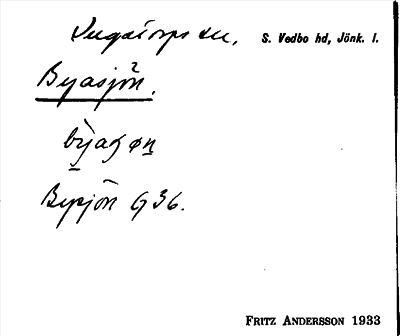 Lugatorps sn. S. Vedbo hd, Jönk. l.
Byasjön.
by̬aʃøn
Bysjön G 36.
FRITZ ANDERSSON 1933